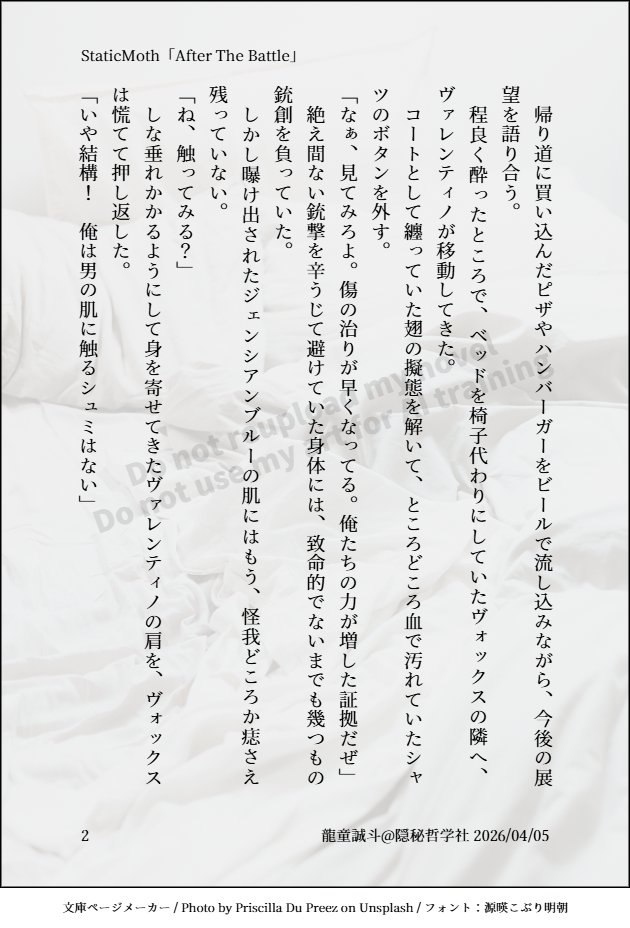 StaticMoth「After The Battle」
　帰り道に買い込んだピザやハンバーガーをビールで流し込みながら、今後の展
望を語り合う。
　程良く酔ったところで、ベッドを椅子代わりにしていたヴォックスの隣へ、
ヴァレンティノが移動してきた。
　コートとして纏っていた翅の擬態を解いて、ところどころ血で汚れていたシャ
ツのボタンを外す。
「なぁ、見てみろよ。傷の治りが早くなってる。俺たちの力が増した証拠だぜ」
　絶え間ない銃撃を辛うじて避けていた身体には、致命的でないまでも幾つもの
銃創を負っていた。
　しかし曝け出されたジェンシアンブルーの肌にはもう、怪我どころか痣さえ
残っていない。
「ね、触ってみる？」
　しな垂れかかるようにして身を寄せてきたヴァレンティノの肩を、ヴォックス
は慌てて押し返した。
「いや結構！　俺は男の肌に触るシュミはない」
Do not reupload my novel
Do not use my art for AI training
2
龍童誠斗@隠秘哲学社 2026/04/05
文庫ページメーカー / Photo by Priscilla Du Preez on Unsplash / フォント：源暎こぶり明朝